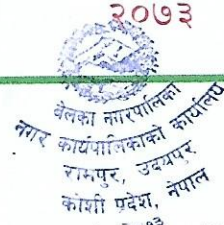 २०७३
बेलका नगरपालिका
नगर कार्यपालिकाको कार्यालय
रामपुर, उदयपुर
कोशी प्रदेश, नेपाल